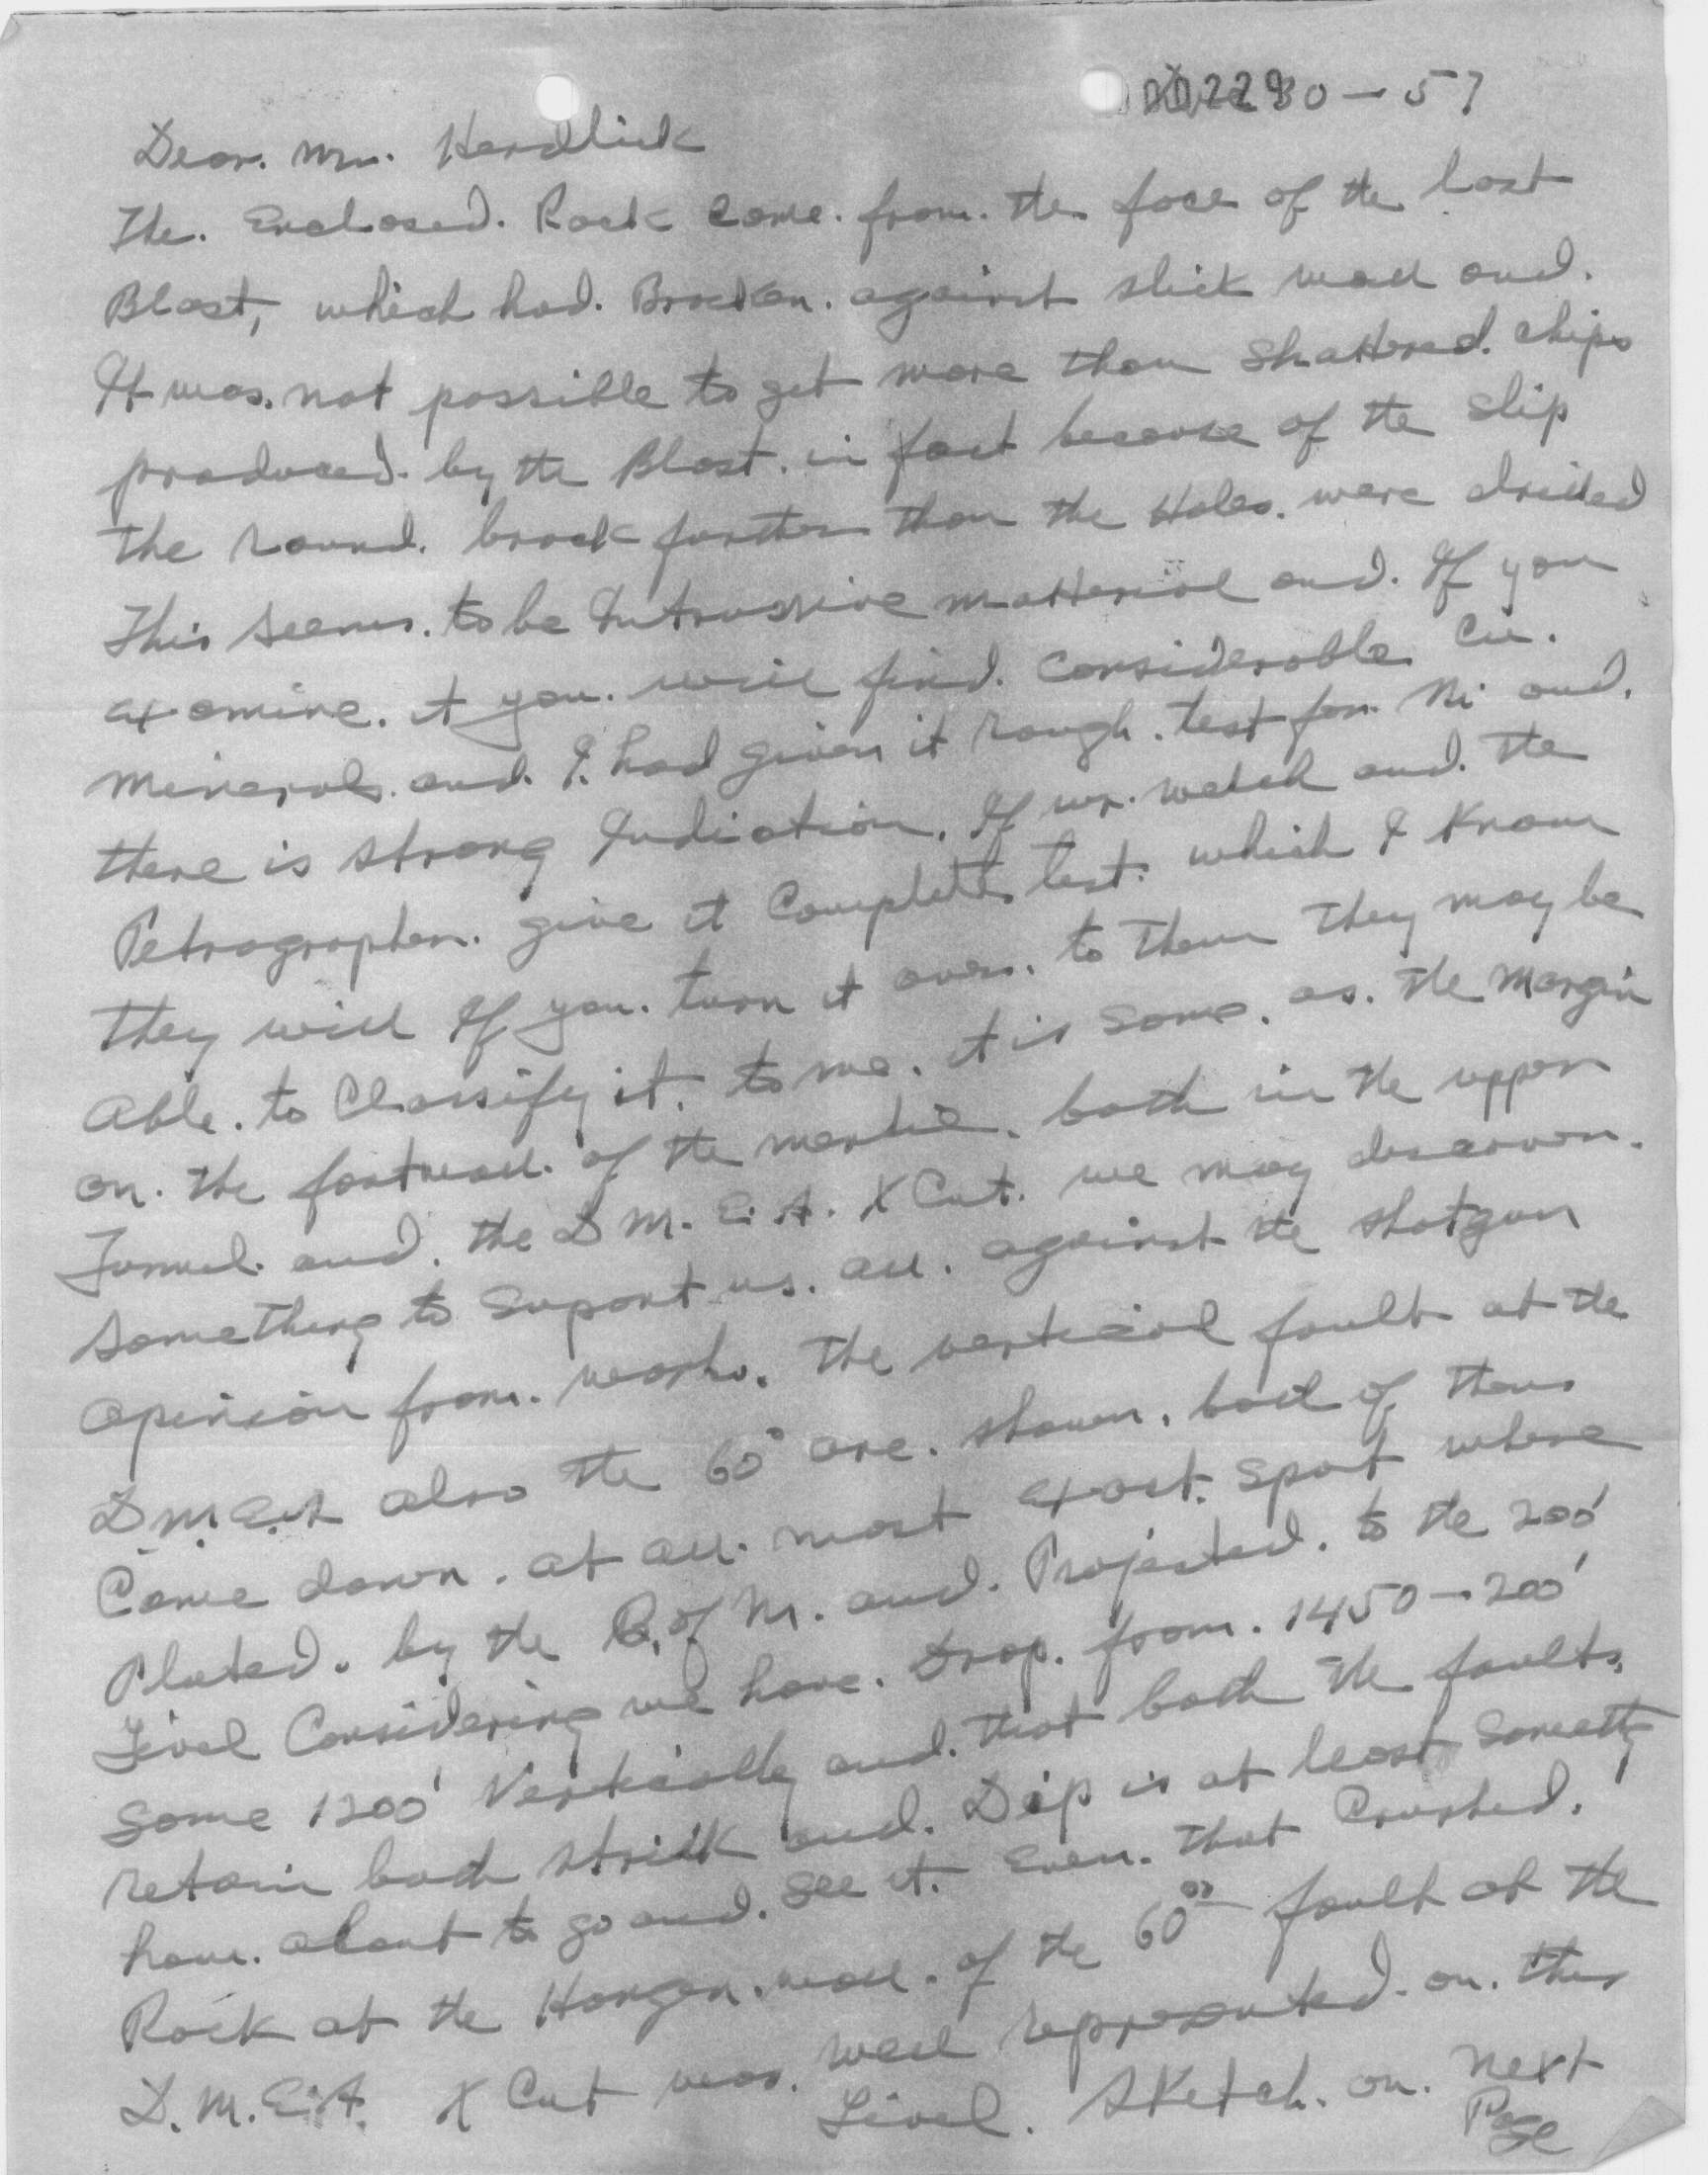 30 — 57
Dear. Mr. Herdlick
The. Enclosed. Rock come. from. the face of the last
Blast, which had. Brocken. against slick wall and.
It was. not possible to get more than Shattered. chips
produced. by the Blast. in fact because of the slip
the round. brock further than the Holes. were drilled
This seems. to be Intrussive matterial and. If you
examine. it you. will find. Considerable Cu.
minerals. and. I. had given it rough. test for. Ni and.
there is strong Indication. If mr. and. the
Petrographer. give it Complette test. which I know
they will If you. turn it over. to them they may be
Able. to Classify it. to me. it is same. as. the margin
on. the footwall. of the both in the upper
Tunnel. and. the D M. E. A. X Cut. we may
something to Suport us. all. against the shotgun
opinion from. works. The verticial fault at the
D.M.E.A also the 60° are. shown. of them
Come down. at all. most exact. spot where
Ploted. by the B. of M. and. Projected. to the 200'
Level Considering we have. Drop. from. 1450 — 200'
Some 1200' Vertically and. that both the faults.
retain both strick and. Dip is at least
to go and. see it. Even. that Crushed.
Rock at the Hangen. wall. of the 60° fault at the
D. M. E. A. X Cut was. well on. this
Level. Sketch. on. next
Page